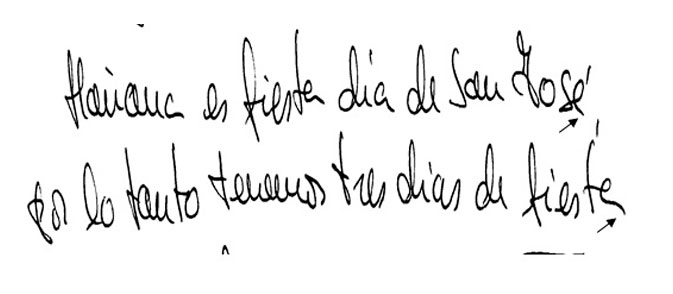 Mañana es fiesta dia de San José
por lo tanto tenemos tres dias de fiesta